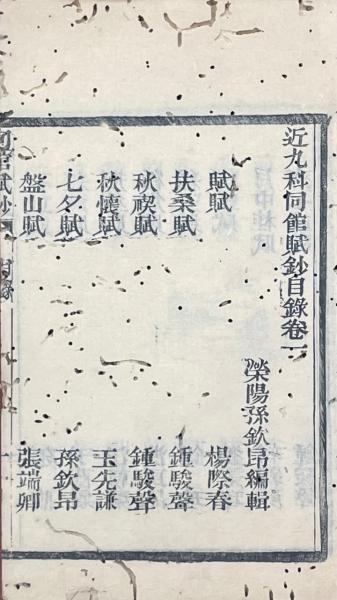 近九科同館賦鈔目錄卷一
滎陽孫欽昂編輯
賦賦 楊際春
扶桑賦 鍾駿聲
秋禊賦 鍾駿聲
秋懷賦 王先謙
七夕賦 孫欽昂
盤山賦 張端卿
同館賦鈔 目錄 一